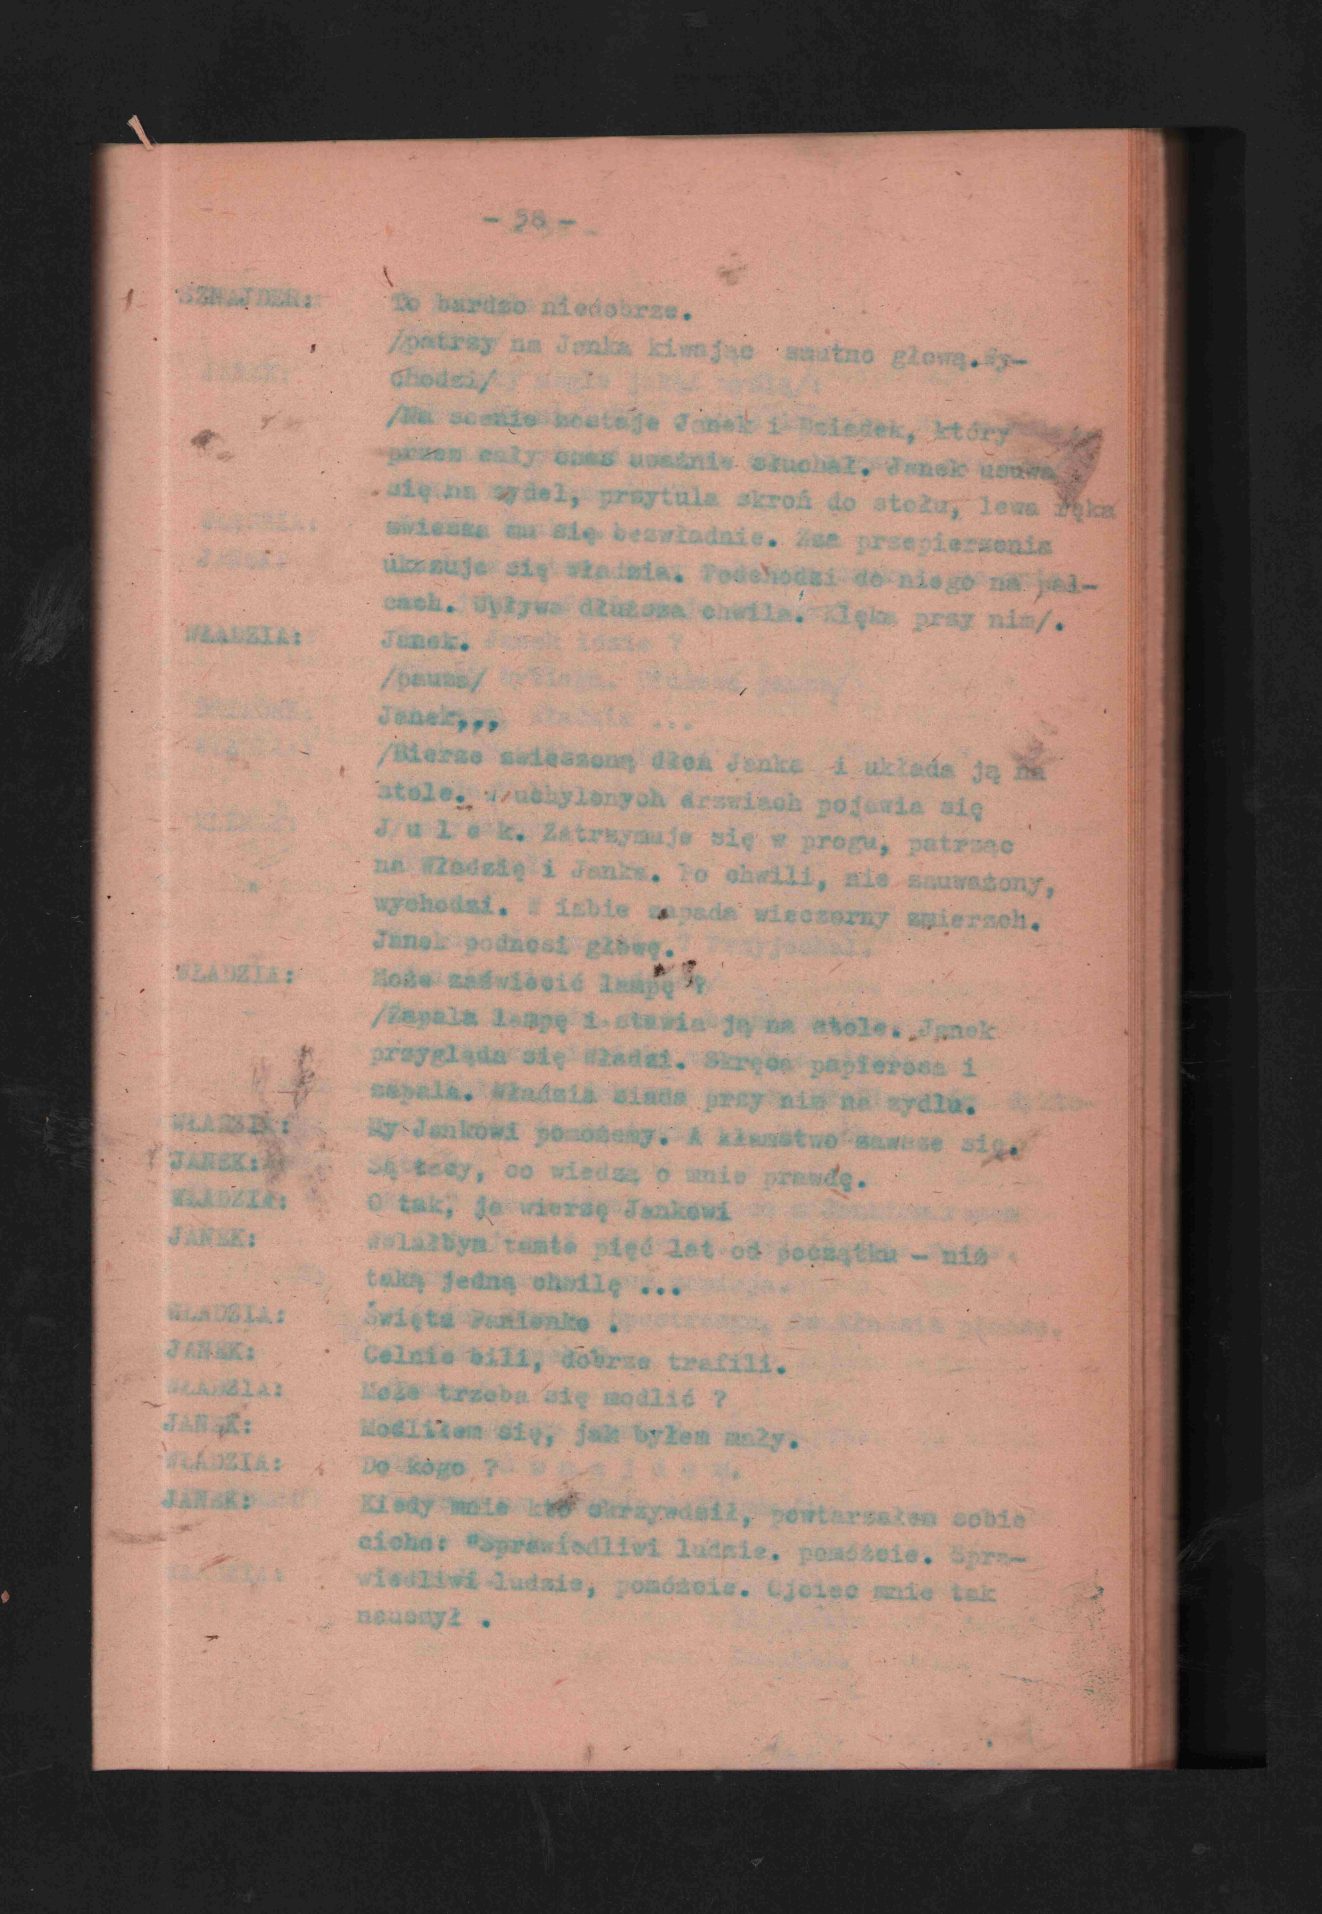 - 58 -
SZNAJDER: To bardzo niedobrze.
/patrzy na Janka kiwając smutno głową.Wy-
chodzi/
/Na scenie zostaje Janek i Dziadek, który
przez cały czas uważnie słuchał. Janek usuwa
się na zydel, przytula skroń do stołu, lewa ręka
zwiesza mu się bezwładnie. Zza przepierzenia
ukazuje się Władzia. Podchodzi do niego na pal-
cach. Upływa dłuższa chwila. Klęka przy nim/.
WŁADZIA: Janek.
/pauza/
Janek,,,
/Bierze zwieszoną dłoń Janka i układa ją na
stole. W uchylonych drzwiach pojawia się
J u l e k. Zatrzymuje się w progu, patrząc
na Władzię i Janka. Po chwili, nie zauważony,
wychodzi. W izbie zapada wieczorny zmierzch.
Janek podnosi głowę.
WŁADZIA: Może zaświecić lampę ?
/Zapala lampę i stawia ją na stole. Janek
przygląda się Władzi. Skręca papierosa i
zapala. Władzia siada przy nim na zydlu.
WŁADZIA: My Jankowi pomożemy. A kłamstwo zawsze się.
JANEK: Są tacy, co wiedzą o mnie prawdę.
WŁADZIA: O tak, ja wierzę Jankowi
JANEK: Wolałbym tamte pięć lat od początku - niż
taką jedną chwilę ...
WŁADZIA: Święta Panienko .
JANEK: Celnie bili, dobrze trafili.
WŁADZIA: Może trzeba się modlić ?
JANEK: Modliłem się, jak byłem mały.
WŁADZIA: Do kogo ?
JANEK: Kiedy mnie kto skrzywdził, powtarzałem sobie
cicho: "Sprawiedliwi ludzie. pomóżcie. Spra-
wiedliwi ludzie, pomóżcie. Ojciec mnie tak
nauczył .